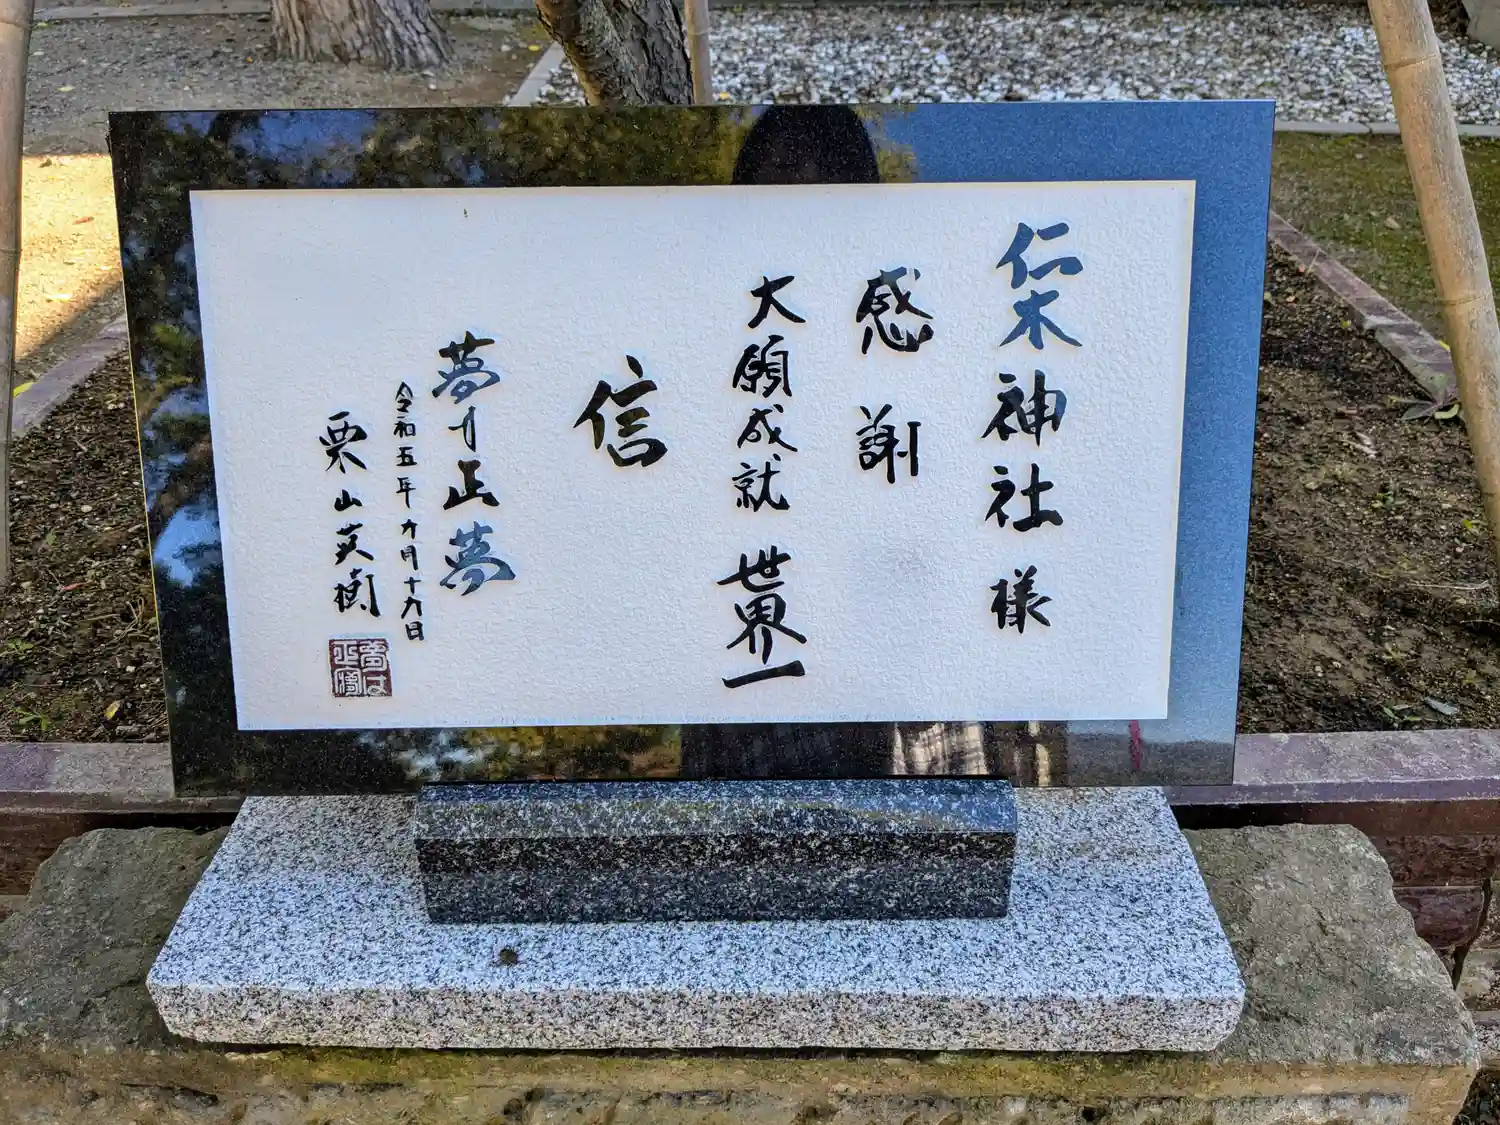 仁木神社様
感謝
大願成就 世界一
信
夢は正夢
令和五年九月十九日
栗山英樹
夢は正夢